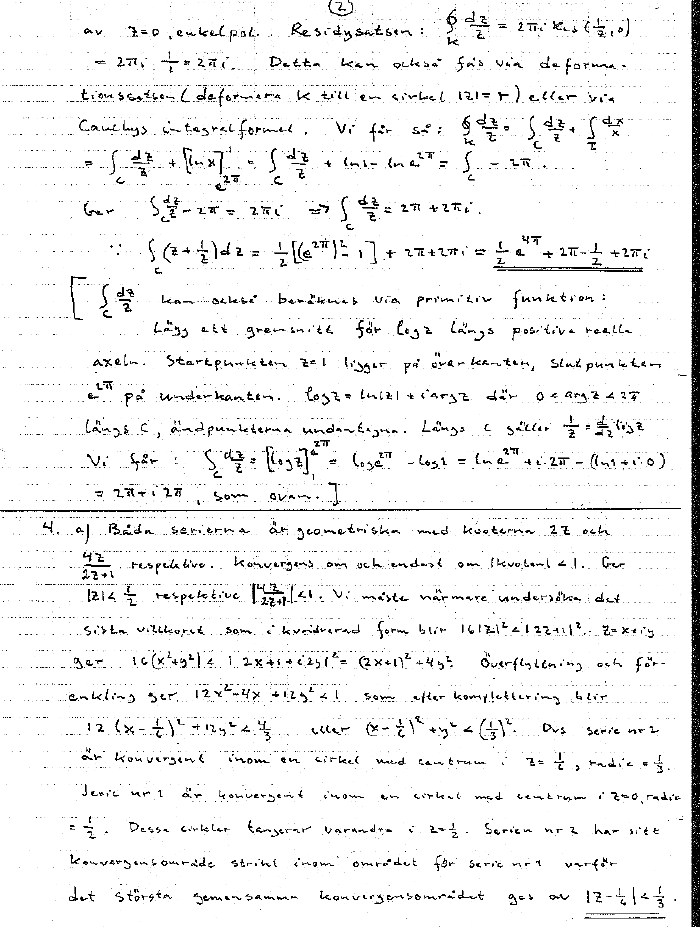 (2)
av z=0, enkelpol. Residysatsen: ∮_K dz/z = 2πi Res(1/z, 0)
= 2πi · 1/1 = 2πi. Detta kan också fås via deforma-
tionssatsen (deformera K till en cirkel |z|=r) eller via
Cauchys integralformel. Vi får så: ∮_K dz/z = ∫_C dz/z + ∫ dx/x
= ∫_C dz/z + [ln x]_{e^{2π}}^1 = ∫_C dz/z + ln 1 - ln e^{2π} = ∫_C - 2π.
Ger ∫_C dz/z - 2π = 2πi ⇒ ∫_C dz/z = 2π + 2πi.
∵ ∫_C (z + 1/z) dz = 1/2 [(e^{2π})^2 - 1] + 2π + 2πi = 1/2 e^{4π} + 2π - 1/2 + 2πi
[ ∫_C dz/z kan också beräknas via primitiv funktion:
Lägg ett grensnitt för log z längs positiva reella
axeln. Startpunkten z=1 ligger på överkanten, slutpunkten
e^{2π} på underkanten. log z = ln|z| + i arg z där 0 < arg z < 2π
längs C, ändpunkterna undantagna. Längs C gäller 1/z = d/dz log z
Vi får: ∫_C dz/z = [log z]_1^{e^{2π}} = log e^{2π} - log 1 = ln e^{2π} + i·2π - (ln 1 + i·0)
= 2π + i 2π, som ovan. ]
4. a) Båda serierna är geometriska med kvoterna 2z och
4z/(2z+1) respektive. Konvergens om och endast om |kvoten| < 1. Ger
|z| < 1/2 respektive |4z/(2z+1)| < 1. Vi måste närmare undersöka det
sista villkoret som i kvadrerad form blir 16|z|^2 < |2z+1|^2. z=x+iy
ger 16(x^2+y^2) < |2x+1+i2y|^2 = (2x+1)^2 + 4y^2. Överflyttning och för-
enkling ger 12x^2 - 4x + 12y^2 < 1 som efter komplettering blir
12(x - 1/6)^2 + 12y^2 < 4/3 eller (x - 1/6)^2 + y^2 < (1/3)^2. Dvs serie nr 2
är konvergent inom en cirkel med centrum i z = 1/6, radie = 1/3.
Serie nr 1 är konvergent inom en cirkel med centrum i z=0, radie
= 1/2. Dessa cirklar tangerar varandra i z=1/2. Serien nr 2 har sitt
konvergensområde strikt inom området för serie nr 1 varför
det största gemensamma konvergensområdet ges av |z - 1/6| < 1/3.